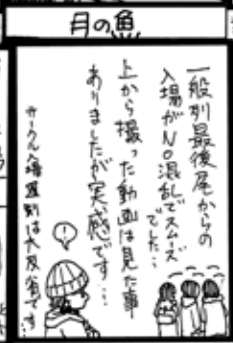 月の魚
一般列最後尾からの
入場がNO混乱でスムーズ
でした…
上から撮った動画は見た事
ありましたが実感です…
サークル入場遅刻は大反省です…
!